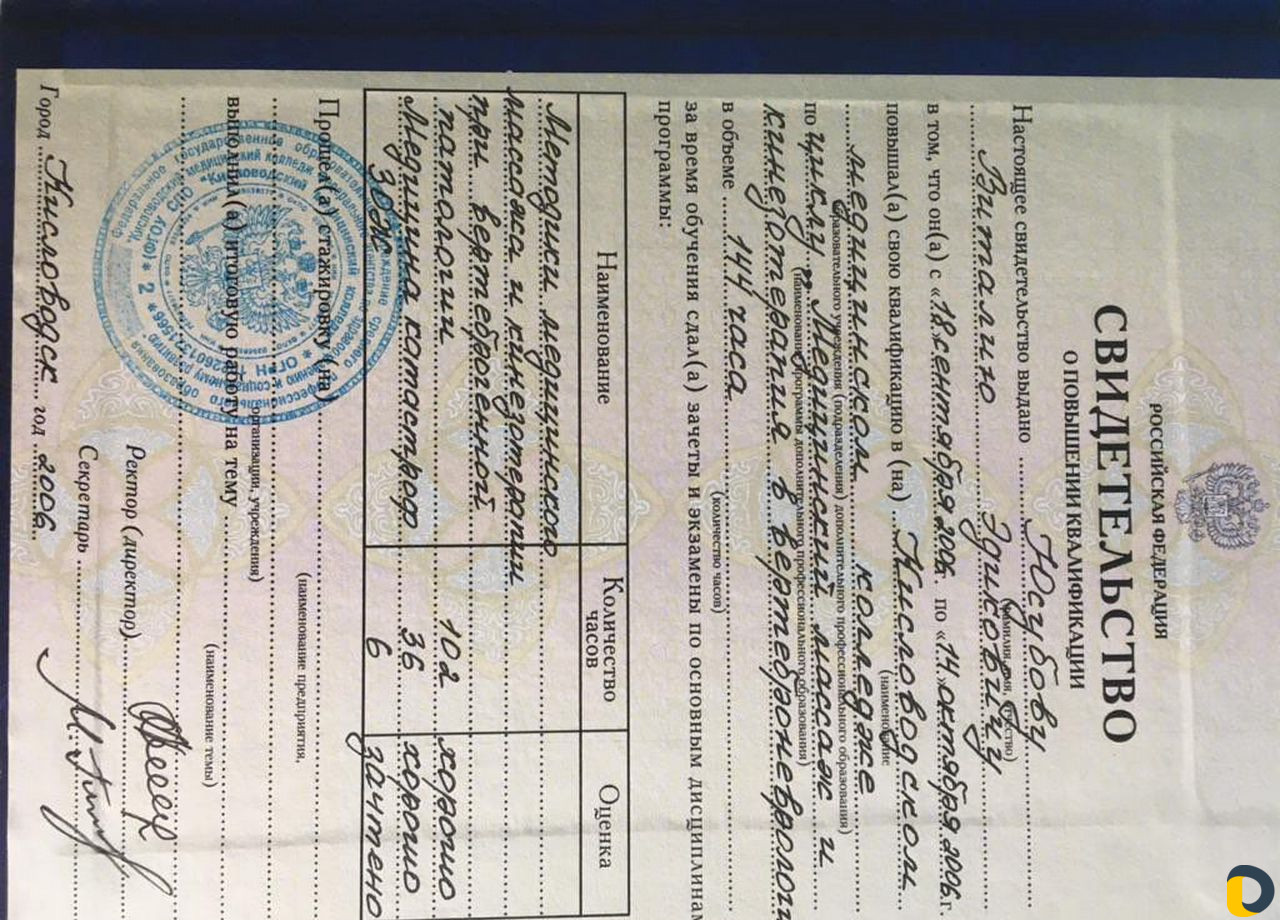 РОССИЙСКАЯ ФЕДЕРАЦИЯ
СВИДЕТЕЛЬСТВО
О ПОВЫШЕНИИ КВАЛИФИКАЦИИ
Настоящее свидетельство выдано Юсубову
(фамилия, имя, отчество)
Виталию Эдиковичу
в том, что он(а) с «18» сентября 2006. по «14» октября 2006.г.
повышал(а) свою квалификацию в (на) Кисловодском
(наименование
медицинском колледже
образовательного учреждения (подразделения) дополнительного профессионального образования)
по циклу „Медицинский массаж и
(наименование программы дополнительного профессионального образования)
кинезотерапия в вертеброневрологи
в объеме 144 часа
(количество часов)
за время обучения сдал(а) зачеты и экзамены по основным дисциплинам
программы:
Наименование Количество часов Оценка
Методики медицинского
массажа и кинезотерапии
при вертеброгенной
патологии 102 хорошо
Медицина катастроф 36 хорошо
ЗОЖ 6 зачтено
Прошел(а) стажировку (на)
(наименование предприятия,
организации, учреждения)
выполнил(а) итоговую работу на тему
(наименование темы)
Ректор (директор)
Секретарь
Город Кисловодск год 2006